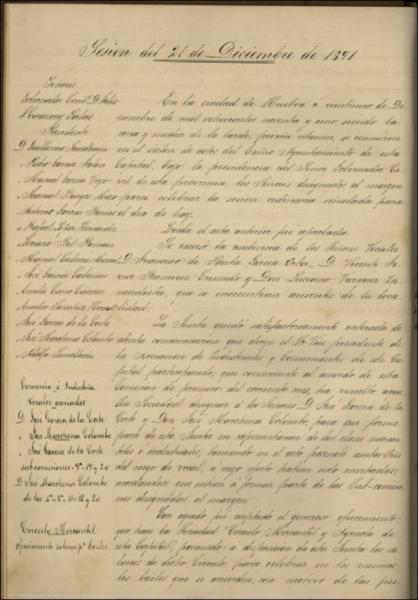 Sesión del 21 de Diciembre de 1891
Señores
Gobernador Civil D.
Presidente
D. Guillermo Sundheim
Pedro García
Manuel García
Manuel
Antonio García Ramos
Rafael López Hernández
José García
José García de la Corte
José Marchena Colombo
Adolfo Sundheim
Comercio é Industria
Vocales asociados
D. José García de la Corte
" José Marchena Colombo
" José García de la Corte
subcomisiones 9ª 19 y 20
D. José Marchena Colombo
de las
Círculo Mercantil
ofrecimiento salones pª bailes
En la ciudad de Huelva á veintiuno de Di-
ciembre de mil ochocientos noventa y uno siendo la
una y media de la tarde, previa citacion, se reunieron
en el salon de actos del Excmo Ayuntamiento de esta
Capital, bajo la presidencia del Señor Gobernador Ci-
vil de esta provincia, los Señores designados al margen
para celebrar la sesion ordinaria señalada para
el dia de hoy.
El acta anterior fué aprobada.
Se excusó la ausencia de los Señores Vocales
D. Francisco de Paula García Ortiz, D. Vicente
Ramirez Cruzado y Don Luciano Vazquez
que se encuentran ausentes de la loca-
lidad.
La Junta quedó satisfactoriamente enterada de
atenta comunicacion que dirige el Sr Vice presidente de
la Asociacion de Industriales y Comerciantes de esta
Capital, participando, que consecuente al acuerdo de esta
Comision de primero del corriente mes, ha resuelto aque-
lla Sociedad designar á los Señores D. José García de la
Corte y Don José Marchena Colombo, para que formen
parte de esta Junta en representacion de las clases mercan-
tiles é industriales, tomando en el acto posesion ambos Sres
del cargo de vocal, á cuyo efecto habian sido invitados;
acordandose que entren á formar parte de las Sub-comisio-
nes designadas al margen.
Con agrado fué aceptado el generoso ofrecimiento
que hace la Sociedad "Círculo Mercantil y Agrícola de
esta Capital", poniendo á disposicion de esta Junta los sa-
lones de dicho Círculo para celebrar en los mismos
los bailes que se acuerden, con motivo de las